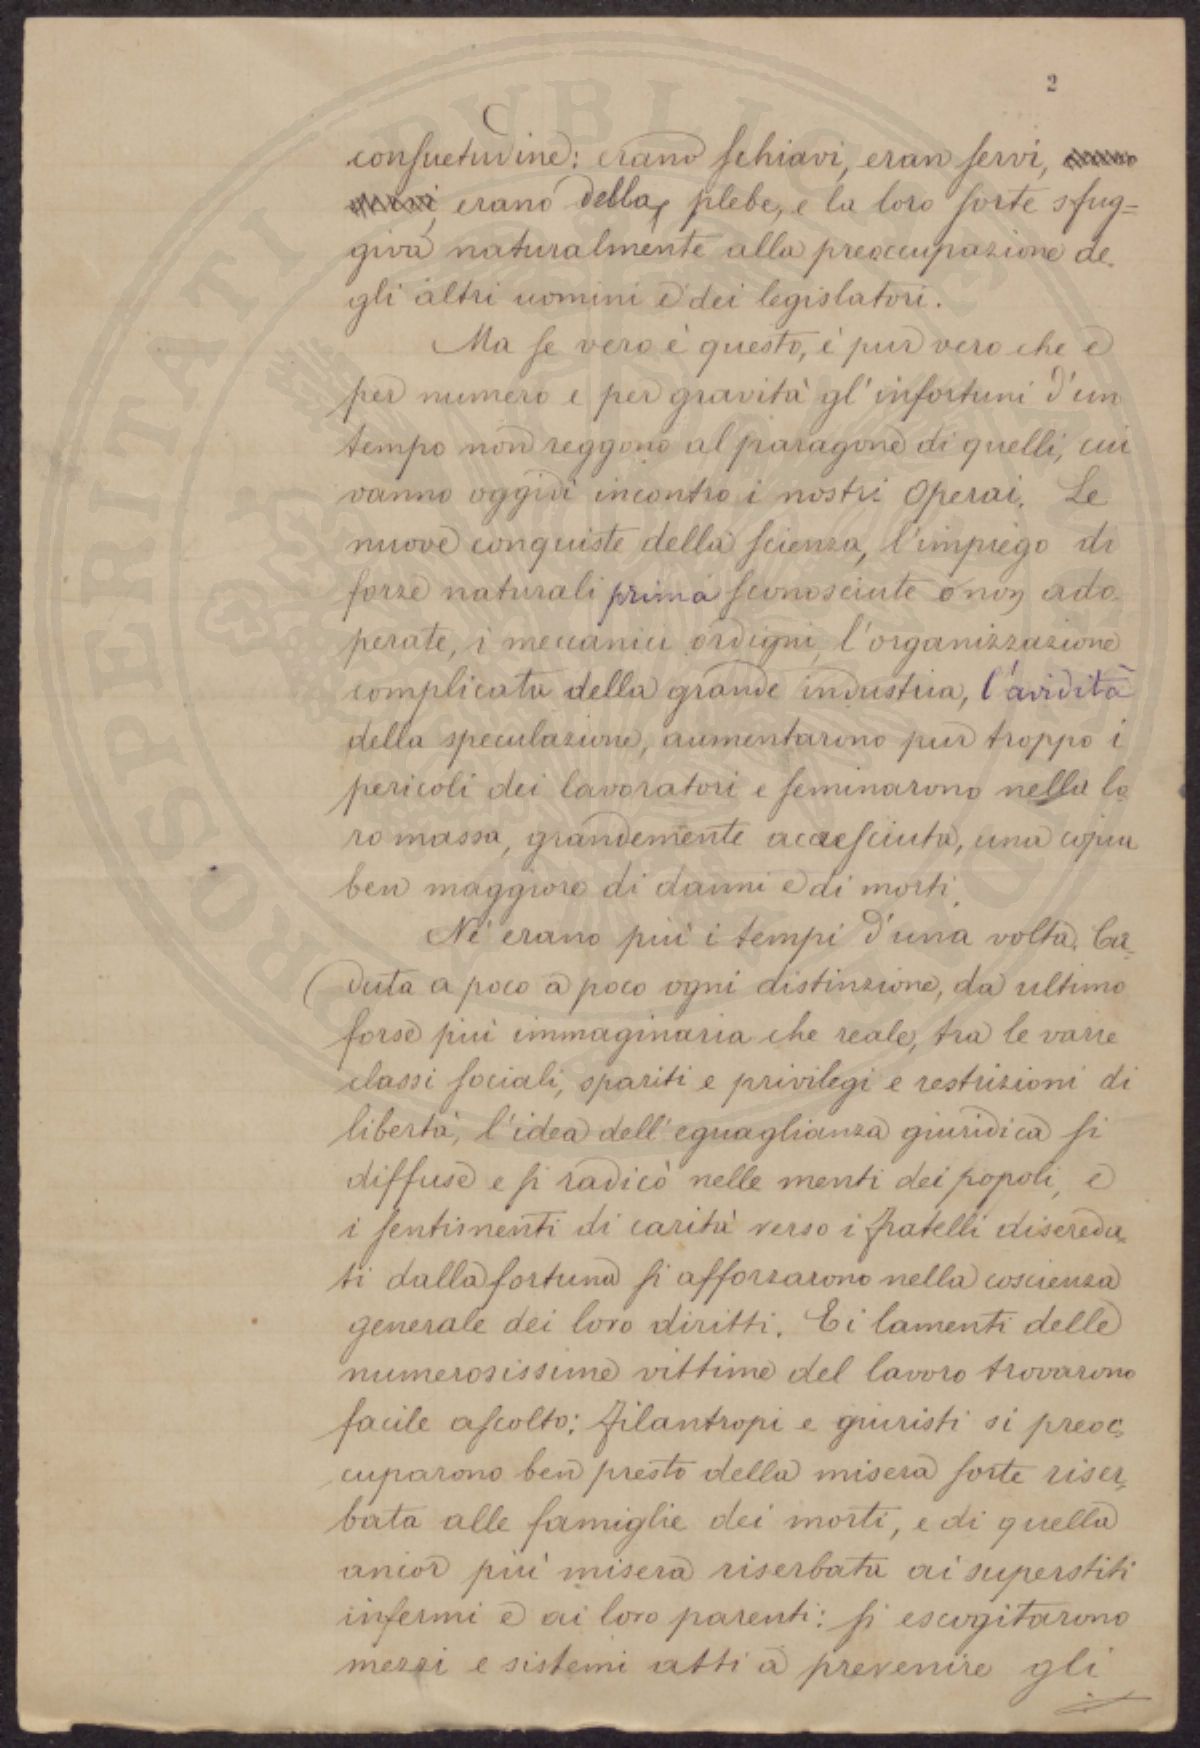 2
consuetudine: erano schiavi, eran servi,
erano della plebe, e la loro sorte sfug=
giva naturalmente alla preoccupazione de-
gli altri uomini e dei legislatori.
Ma se vero è questo, è pur vero che e
per numero e per gravità gl'infortuni d'un
tempo non reggono al paragone di quelli, cui
vanno oggidì incontro i nostri operai. Le
nuove conquiste della scienza, l'impiego di
forze naturali prima sconosciute o non ado-
perate, i meccanici ordigni, l'organizzazione
complicata della grande industria, l'avidità
della speculazione, aumentarono pur troppo i
pericoli dei lavoratori e seminarono nella lo
ro massa, grandemente accresciuta, una copia
ben maggiore di danni e di morti.
Nè erano più i tempi d'una volta. Ca-
duta a poco a poco ogni distinzione, da ultimo
forse più immaginaria che reale, tra le varie
classi sociali, spariti e privilegi e restrizioni di
libertà, l'idea dell'eguaglianza giuridica si
diffuse e si radicò nelle menti dei popoli, e
i sentimenti di carità verso i fratelli disereda-
ti dalla fortuna si afforzarono nella coscienza
generale dei loro diritti. E i lamenti delle
numerosissime vittime del lavoro trovarono
facile ascolto: filantropi e giuristi si preoc-
cuparono ben presto della misera sorte riser-
bata alle famiglie dei morti, e di quella
ancor più misera riserbata ai superstiti
infermi e ai loro parenti: si escogitarono
mezzi e sistemi atti a prevenire gli
PROSPERITATI PVBLICAE